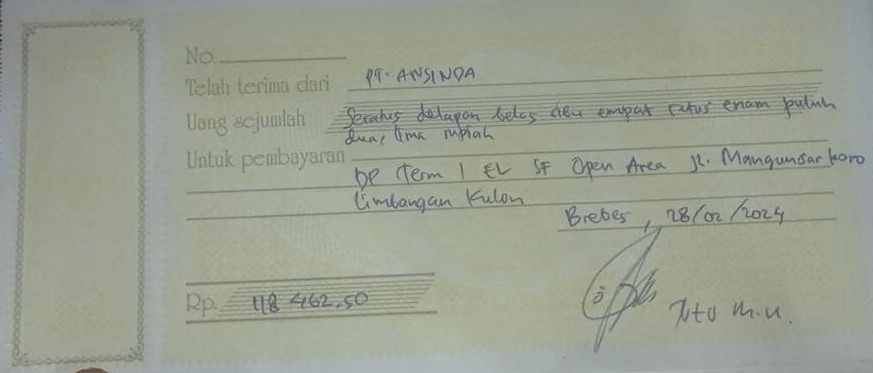 No.
Telah terima dari PT. ANSINDA
Uang sejumlah Seratus delapan belas ribu empat ratus enam puluh
dua, lima rupiah
Untuk pembayaran
DP Term 1 EL SF Open Area Jl. Mangunsarkoro
Limbangan Kulon
Brebes, 28/02/2024
Rp. 118 462,50
M.U.